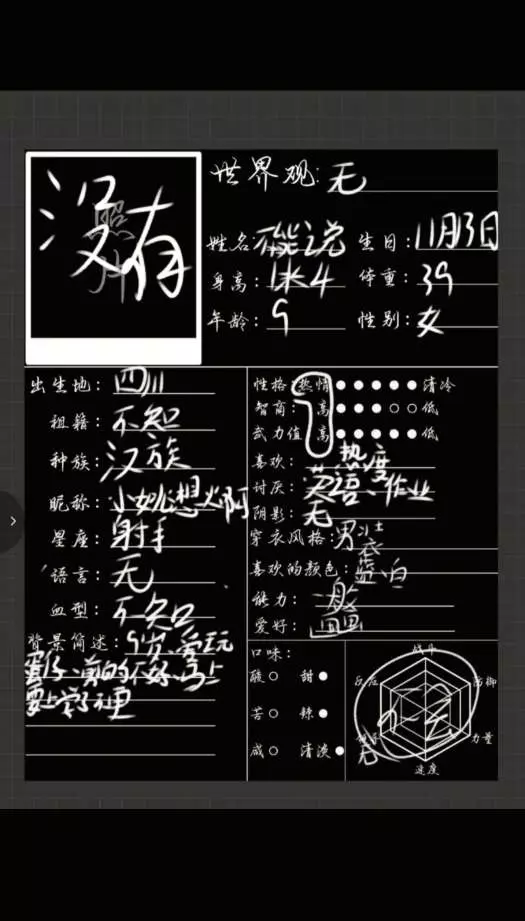 没有
照片
世界观: 无
姓名: 不能说 生日: 11月13日
身高: 1米4 体重: 39
年龄: 9 性别: 女
出生地: 四川
祖籍: 不知
种族: 汉族
昵称: 小妙想火啊
星座: 射手
语言: 无
血型: 不知
背景简述: 9岁、爱玩
蛋仔、剪的不好、马上
要上学了不更
性格: 热情 清冷
智商: 高 低
武力值 高 低
喜欢: 热度
讨厌: 英语、作业
阴影: 无
穿衣风格: 男装
喜欢的颜色: 蓝、白
能力:
爱好:
口味:
酸 甜
苦 辣
咸 清淡
战斗
防御
力量
速度